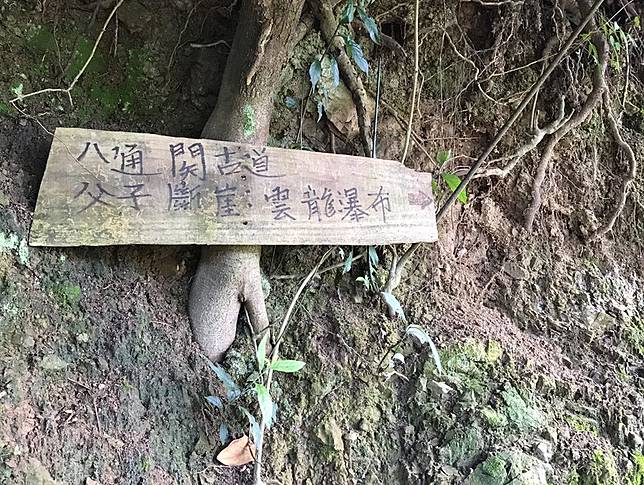 八通関古道
父子斷崖:雲龍瀑布→